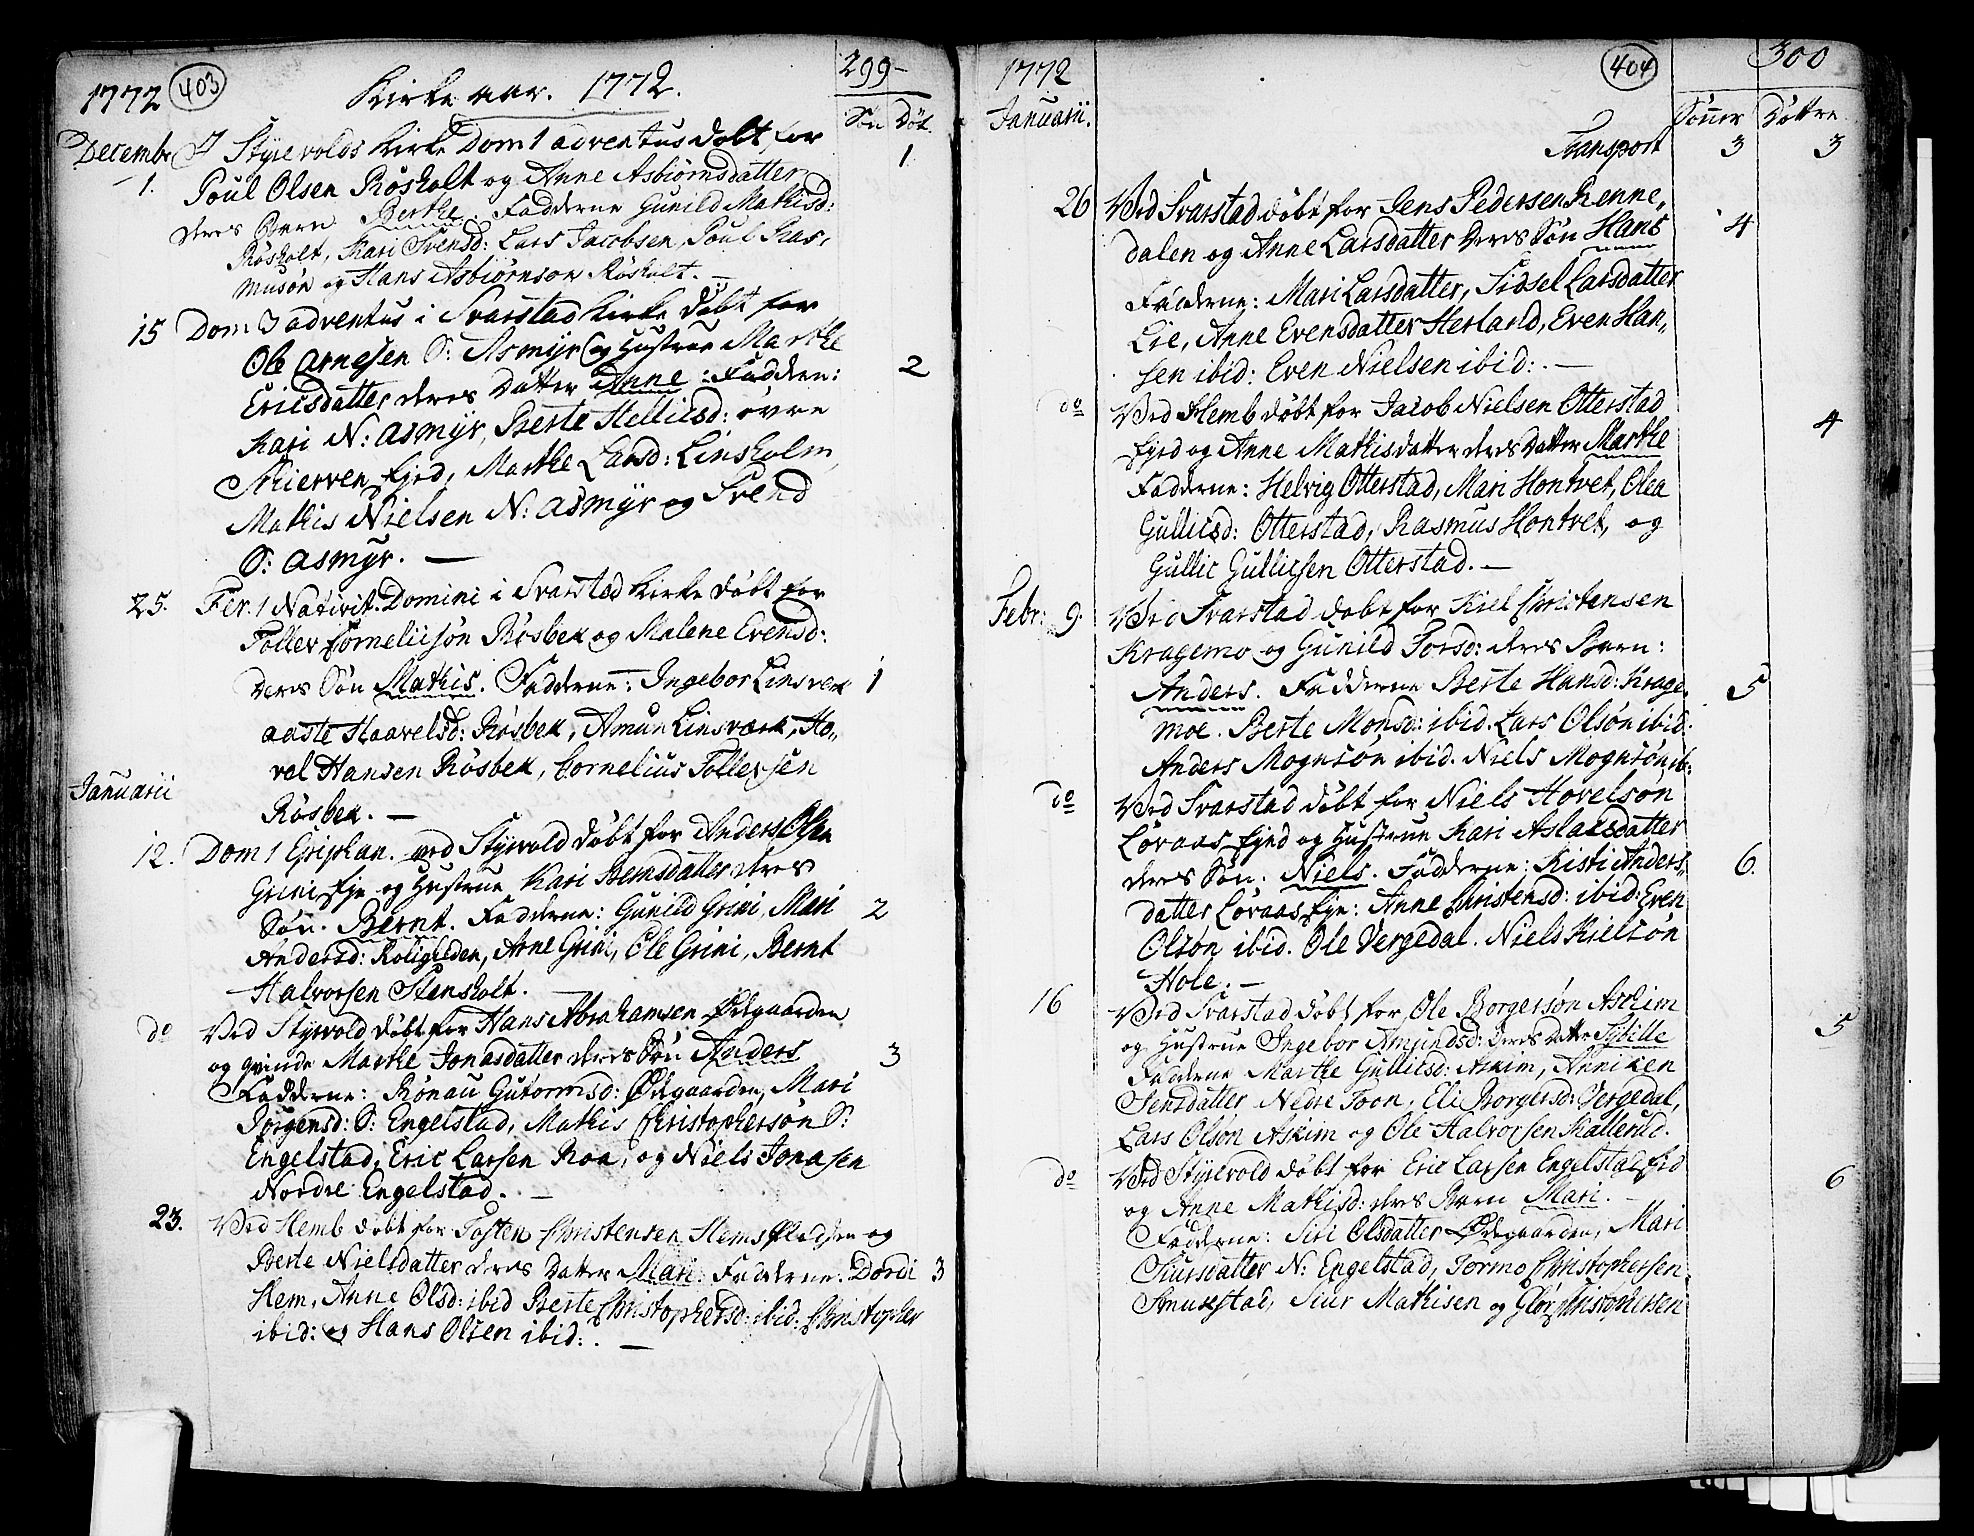 1772 403 Kirke aar. 1772. 299-
Søn Døt.
Decembr J Styrevolds Kirke Dom 1 adventus døbt for
1. Poul Olsen Røsholt og Anne Asbiørnsdatter 1
deres Barn Berthe. Fadderne Gunild Mathisd:
Røsholt, Kari Svensd: Lars Jacobsen, Poul Ras,
musøn og Hans Asbiørnson Røsholt. —
15 Dom 3 adventus i Svarstad Kirke døbt for
Ole Arnesen S: Asmyr og Hustrue Marthe
Ericsdatter deres Datter Anne: Faddern: 2
Kari N: Asmyr, Berte Hellicsd: øvre
Skierven Ejed, Marthe Larsd: Linsholm,
Mathis Nielsen N: Asmyr og Svend
S: Asmyr. —
25. Fer. 1 Nativit. Domini i Svarstad Kirke døbt for
Toller Corneliisøn Røsbek og Malene Evensd:
deres Søn Mathis. Fadderne: Ingebor Linsverk 1
Aaste Haavelsd: Røsbek, Amun Linsverk, Ho,,
vel Hansen Røsbek, Cornelius Tollersen
Januarii
Røsbek. —
12. Dom 1 Epiphan. ved Styrvold døbt for Anders Olsen
Grini Eje og Hustrue Kari Berntsdatter deres
Søn. Bernt. Fadderne: Gunild Grini, Mari 2
Andersd: Roligheden, Arne Grini, Ole Grini, Bernt
Halvorsen Stensholt.
do Ved Styrvold døbt for Hans Abrahamsen Ødegaarden
og qvinde Marthe Jonasdatter deres Søn Anders 3
Fadderne: Rønau Gutormsd: Ødegaarden, Mari
Jørgensd: S: Engelstad, Mathis Christophersøn S:
Engelstad, Eric Larsen Roa, og Niels Jonasen
Nordre Engelstad. —
23. Ved Hemb døbt for Tosten Christensen Hems and
Berte Nielsdatter deres Datter Mari. Fadderne: Dordi 3
Hem, Anne Olsd: ibid Berte Christophersd: ibid: Christopher
ibid: og Hans Olsen ibid: —
1772 404 300
Januarii. Sønner Døttre
Transport 3 3
26 Ved Svarstad døbt for Jens Pedersen Renne,
dalen og Anne Larsdatter deres Søn Hans 4
Fadderne: Mari Larsdatter, Sidsel Larsdatter
Lie, Anne Evensdatter Herland, Even Han,
sen ibid: Even Nielsen ibid: —
do Ved Hemb døbt for Jacob Nielsen Otterstad
Ejed og Anne Mathisdatter deres Datter Marthe 4
Fadderne: Helvig Otterstad, Mari Hontvet, Olea
Gullicsd: Otterstad, Rasmus Hontvet, og
Gullic Gullicsen Otterstad. —
Febr: 9. Ved Svarstad døbt for Kiel Christensen
Kragemo og Gunild Torsd: deres Barn:
Anders. Fadderne Berte Hansd: Krage, 5
moe. Berte Monsd: ibid. Lars Olsøn ibid:
Anders Mognsøn ibid. Niels Mognsøn ib:
do Ved Svarstad døbt for Niels Hovelsøn
Løvaas Ejed og Hustrue Kari Aslacsdatter
deres Søn: Niels. Fadderne: Kisti Anders,, 6.
datter Løvaas Eje: Anne Christensd: ibid: Even
Olsøn ibid. Ole Vergedal. Niels Kielsøn
Hole. —
16 Ved Svarstad døbt for Ole Borgersøn Askim
og Hustrue Ingebor Amundsd: deres Datter Sybille 5
Fadderne Marthe Gullicsd: Askim, Anniken
Jensdatter Nedre Foon. Eli Borgersd: Vergedal,
Lars Olson Askim og Ole Halvorsen Kallerud.
do Ved Styrvold døbt for Eric Larsen Engelstad Eied
og Anne Mathisd: deres Barn Mari. — 6
Fadderne: Siri Olsdatter Ødegaarden, Mari
Siursdatter N: Engelstad, Tormo Christophersen
Smukestad, Siur Mathisen og Glør Christophersen